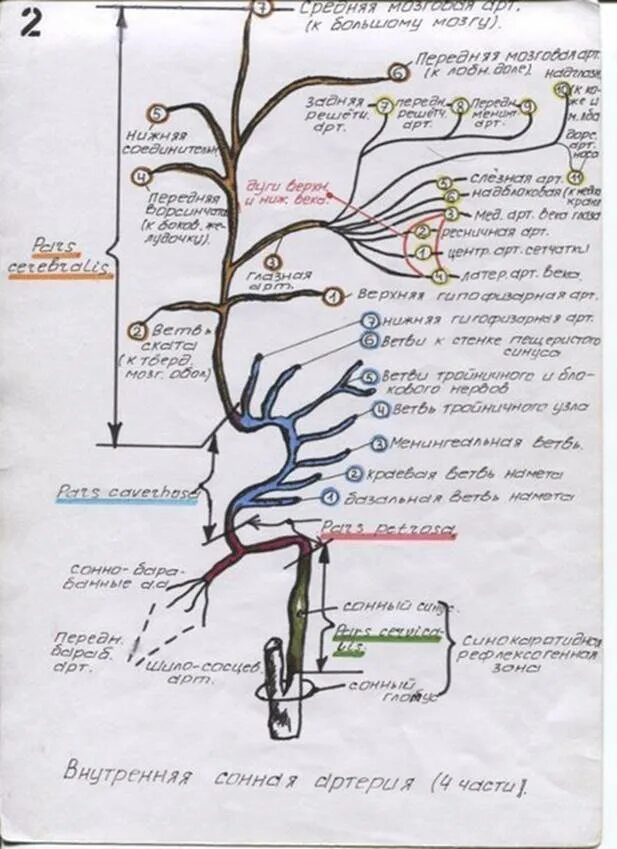 2
7 Средняя мозговая арт.
(к большому мозгу).
6 Передняя мозговая арт
(к лобн. доле).
5
Нижняя
соединительн
4
Передняя
ворсинчат
(к боков. же-
лудочку).
Pars
cerebralis.
Задняя
решётч.
арт.
7
передн.
решётч.
арт.
8
Передн.
менинг.
арт.
9
надглазн.
10
(к ко-
же и
м. лба
дорс.
арт.
носа
11
дуги верхн.
и ниж. века.
5 слёзная арт.
6 надблоковая
3 мед. арт. века глаза
2 ресничная арт.
1 центр. арт. сетчатки
4 латер. арт. века.
3
глазная
арт.
1 Верхняя гипофизарная арт.
2 Ветвь
ската
(к тверд.
мозг. обол)
7 нижняя гипофизарная арт.
6 Ветви к стенке пещеристого
синуса
5 Ветви тройничного и бло-
кового нервов
4 Ветвь тройничного узла
3 Менингеальная ветвь.
2 краевая ветвь намета
1 базальная ветвь намета
Pars cavernosa
Pars petrosa.
сонно-бара-
банные а.а
Передн.
бараб.
арт.
Шило-сосцев.
арт.
сонный синус.
Pars cervica-
lis.
сонный
гломус
Синокаротидная
рефлексогенная
зона
Внутренняя сонная артерия (4 части).